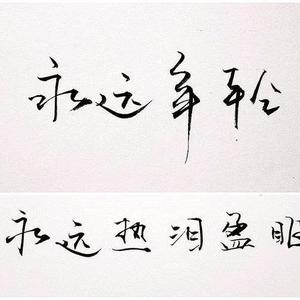 永远年轻
永远热泪盈眶